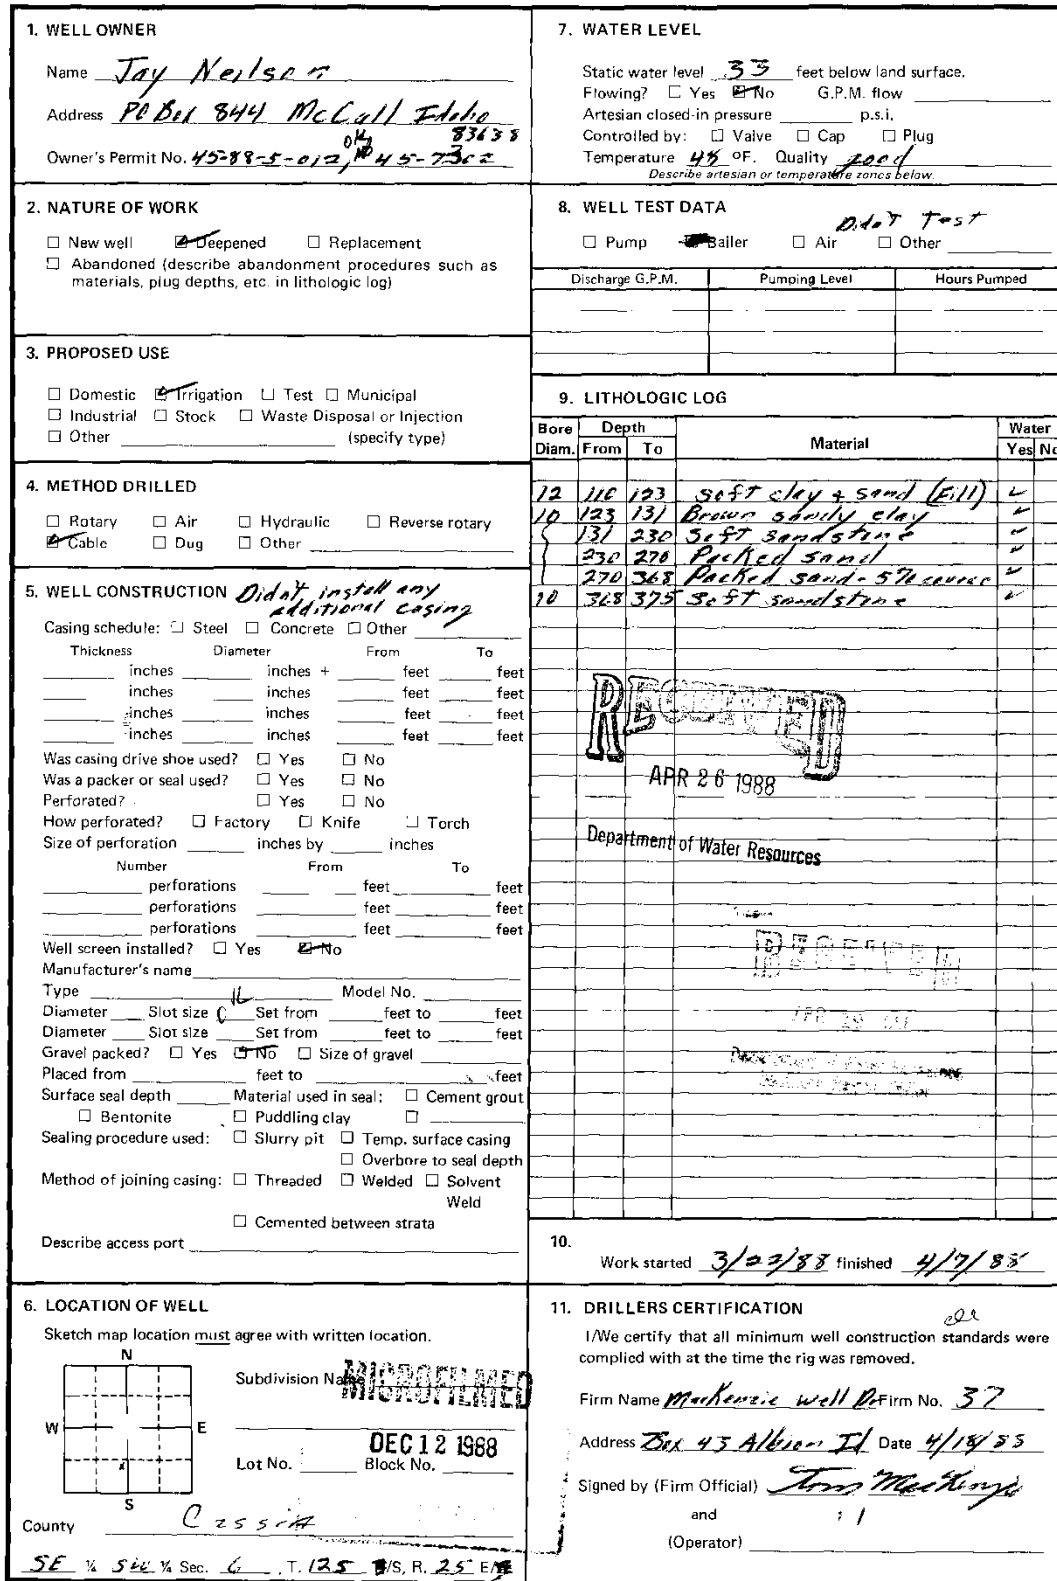 1. WELL OWNER
Name Jay Neilson
Address PO Box 844 McCall Idaho
83638
Owner's Permit No. 45-88-5-012, 45-7302
2. NATURE OF WORK
☐ New well ☑ Deepened ☐ Replacement
☐ Abandoned (describe abandonment procedures such as
materials, plug depths, etc. in lithologic log)
3. PROPOSED USE
☐ Domestic ☑ Irrigation ☐ Test ☐ Municipal
☐ Industrial ☐ Stock ☐ Waste Disposal or Injection
☐ Other (specify type)
4. METHOD DRILLED
☐ Rotary ☐ Air ☐ Hydraulic ☐ Reverse rotary
☑ Cable ☐ Dug ☐ Other
5. WELL CONSTRUCTION Didn't install any
additional casing
Casing schedule: ☐ Steel ☐ Concrete ☐ Other
Thickness Diameter From To
inches inches + feet feet
inches inches feet feet
inches inches feet feet
inches inches feet feet
Was casing drive shoe used? ☐ Yes ☐ No
Was a packer or seal used? ☐ Yes ☐ No
Perforated? ☐ Yes ☐ No
How perforated? ☐ Factory ☐ Knife ☐ Torch
Size of perforation inches by inches
Number From To
perforations feet feet
perforations feet feet
perforations feet feet
Well screen installed? ☐ Yes ☑ No
Manufacturer's name
Type Model No.
Diameter Slot size Set from feet to feet
Diameter Slot size Set from feet to feet
Gravel packed? ☐ Yes ☑ No ☐ Size of gravel
Placed from feet to feet
Surface seal depth Material used in seal: ☐ Cement grout
☐ Bentonite ☐ Puddling clay ☐
Sealing procedure used: ☐ Slurry pit ☐ Temp. surface casing
☐ Overbore to seal depth
Method of joining casing: ☐ Threaded ☐ Welded ☐ Solvent
Weld
☐ Cemented between strata
Describe access port
6. LOCATION OF WELL
Sketch map location must agree with written location.
N
W E
S
Subdivision Name
MICROFILMED
DEC 12 1988
Lot No. Block No.
County Cassia
SE ¼ SW ¼ Sec. 6, T. 12S /S, R. 25 E/
7. WATER LEVEL
Static water level 33 feet below land surface.
Flowing? ☐ Yes ☑ No G.P.M. flow
Artesian closed-in pressure p.s.i.
Controlled by: ☐ Valve ☐ Cap ☐ Plug
Temperature 48 ºF. Quality good
Describe artesian or temperature zones below.
8. WELL TEST DATA
Didn't Test
☐ Pump Bailer ☐ Air ☐ Other
Discharge G.P.M. Pumping Level Hours Pumped
9. LITHOLOGIC LOG
Bore Depth Water
Diam. From To Material Yes No
12 116 123 soft clay + sand (Fill) ✓
10 123 131 Brown sandy clay ✓
131 230 Soft sandstone ✓
230 270 Packed sand ✓
270 368 Packed sand - 5% course ✓
10 368 375 Soft sandstone ✓
RECEIVED
APR 26 1988
Department of Water Resources
RECEIVED
10.
Work started 3/22/88 finished 4/7/88
11. DRILLERS CERTIFICATION
I/We certify that all minimum well construction standards were
complied with at the time the rig was removed.
Firm Name MacKenzie Well Dr Firm No. 37
Address Box 43 Albion Id Date 4/18/88
Signed by (Firm Official) Tom MacKenzie
and
(Operator)